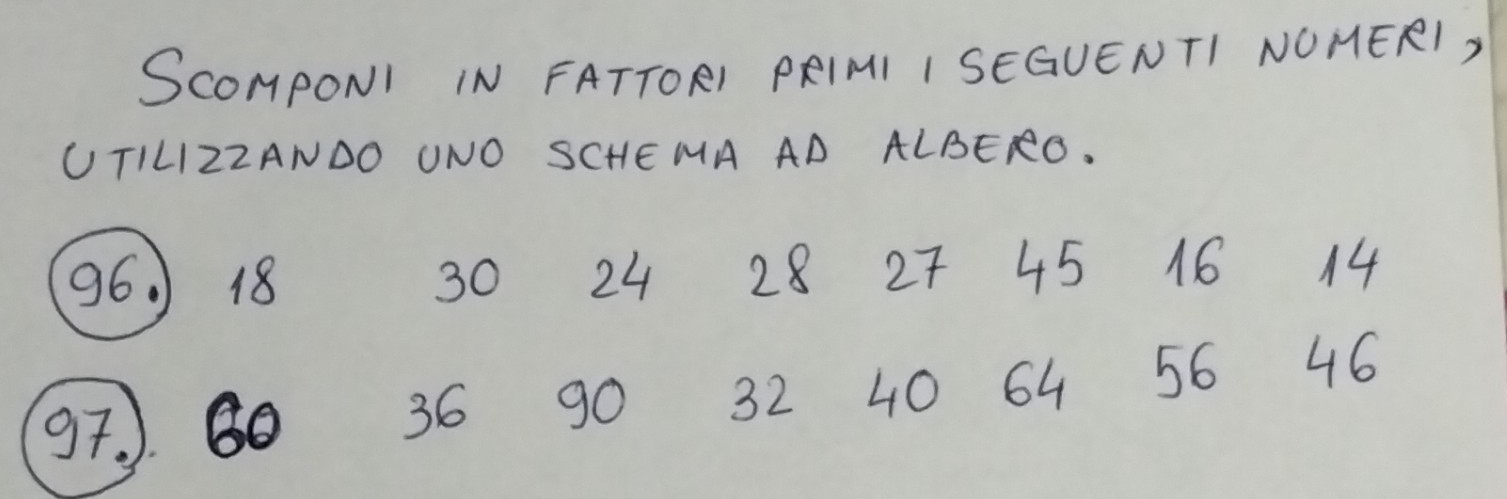 SCOMPONI IN FATTORI PRIMI I SEGUENTI NUMERI,
UTILIZZANDO UNO SCHEMA AD ALBERO.
96. 18 30 24 28 27 45 16 14
97. 60 36 90 32 40 64 56 46